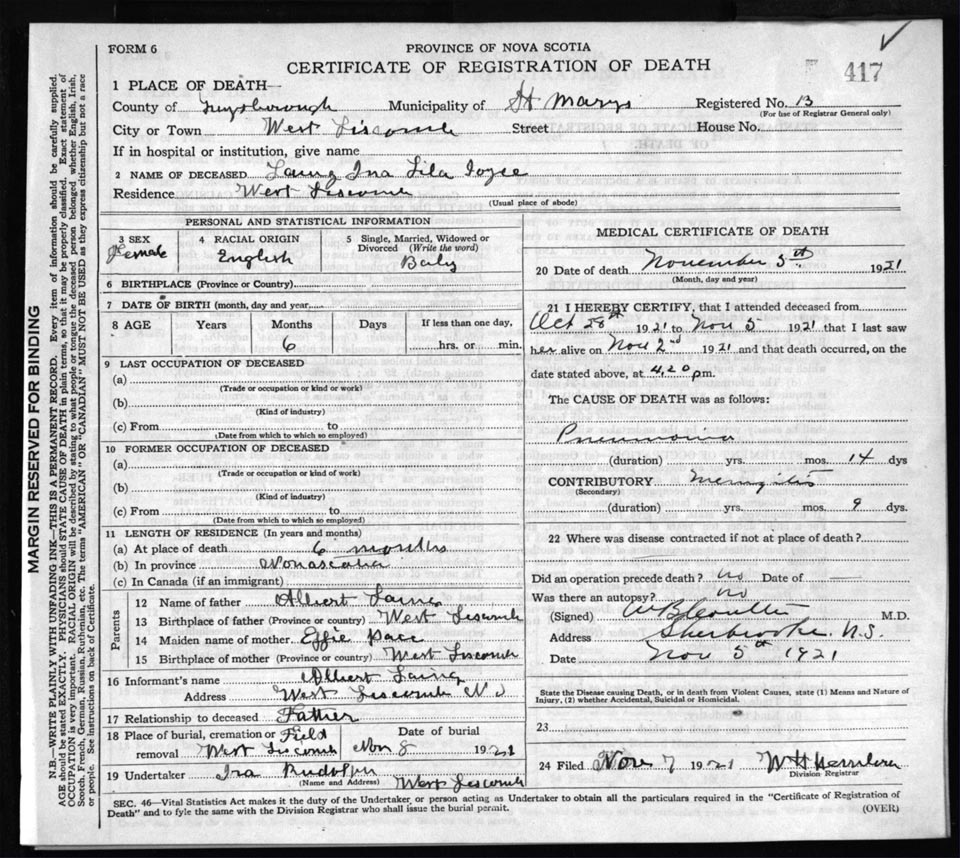 FORM 6
PROVINCE OF NOVA SCOTIA
CERTIFICATE OF REGISTRATION OF DEATH
417
1 PLACE OF DEATH—
County of Guysborough Municipality of St Marys Registered No. 13
(For use of Registrar General only)
City or Town West Liscomb Street House No.
If in hospital or institution, give name
2 NAME OF DECEASED Laing Ina Lila Joyce
Residence West Liscomb
(Usual place of abode)
PERSONAL AND STATISTICAL INFORMATION
3 SEX Female
4 RACIAL ORIGIN English
5 Single, Married, Widowed or Divorced (Write the word) Baby
6 BIRTHPLACE (Province or Country)
7 DATE OF BIRTH (month, day and year)
8 AGE Years Months 6 Days If less than one day, hrs. or min.
9 LAST OCCUPATION OF DECEASED
(a)
(Trade or occupation or kind or work)
(b)
(Kind of industry)
(c) From to
(Date from which to which so employed)
10 FORMER OCCUPATION OF DECEASED
(a)
(Trade or occupation or kind of work)
(b)
(Kind of industry)
(c) From to
(Date from which to which so employed)
11 LENGTH OF RESIDENCE (In years and months)
(a) At place of death 6 months
(b) In province Novascotia
(c) In Canada (if an immigrant)
Parents
12 Name of father Albert Laing
13 Birthplace of father (Province or country) West Liscomb
14 Maiden name of mother Effie Pace
15 Birthplace of mother (Province or country) West Liscomb
16 Informant's name Albert Laing
Address West Liscomb N S
17 Relationship to deceased Father
18 Place of burial, cremation or removal Field West Liscomb Date of burial Nov 8 1921
19 Undertaker Ira Rudolph
(Name and Address) West Liscomb
MEDICAL CERTIFICATE OF DEATH
20 Date of death November 5th 1921
(Month, day and year)
21 I HEREBY CERTIFY, that I attended deceased from
Oct 28th 1921 to Nov 5 1921 that I last saw
her alive on Nov 2nd 1921 and that death occurred, on the
date stated above, at 4,20 pm.
The CAUSE OF DEATH was as follows:
Pneumonia
(duration) yrs. mos. 14 dys
CONTRIBUTORY Meningitis
(Secondary)
(duration) yrs. mos. 9 dys.
22 Where was disease contracted if not at place of death?
Did an operation precede death? no Date of —
Was there an autopsy? no
(Signed) M.D.
Address Sherbrooke N.S.
Date Nov 5th 1921
State the Disease causing Death, or in death from Violent Causes, state (1) Means and Nature of
Injury, (2) whether Accidental, Suicidal or Homicidal.
23
24 Filed Nov 7 1921 W H
Division Registrar
SEC. 46—Vital Statistics Act makes it the duty of the Undertaker or person acting as Undertaker to obtain all the particulars required in the "Certificate of Registration of
Death" and to fyle the same with the Division Registrar who shall issue the burial permit.
(OVER)
MARGIN RESERVED FOR BINDING
N.B.—WRITE PLAINLY WITH UNFADING INK—THIS IS A PERMANENT RECORD. Every item of information should be carefully supplied.
AGE should be stated EXACTLY. PHYSICIANS should STATE CAUSE OF DEATH in plain terms, so that it may be properly classified. Exact statement of
OCCUPATION is very important. RACIAL ORIGIN will be described by stating to what people or tongue the deceased person belonged whether English, Irish,
Scotch, French, German, Russian, Ruthenian, etc. The terms "AMERICAN" OR "CANADIAN" MUST NOT BE USED as they express citizenship but not a race
or people. See instructions on back of Certificate.